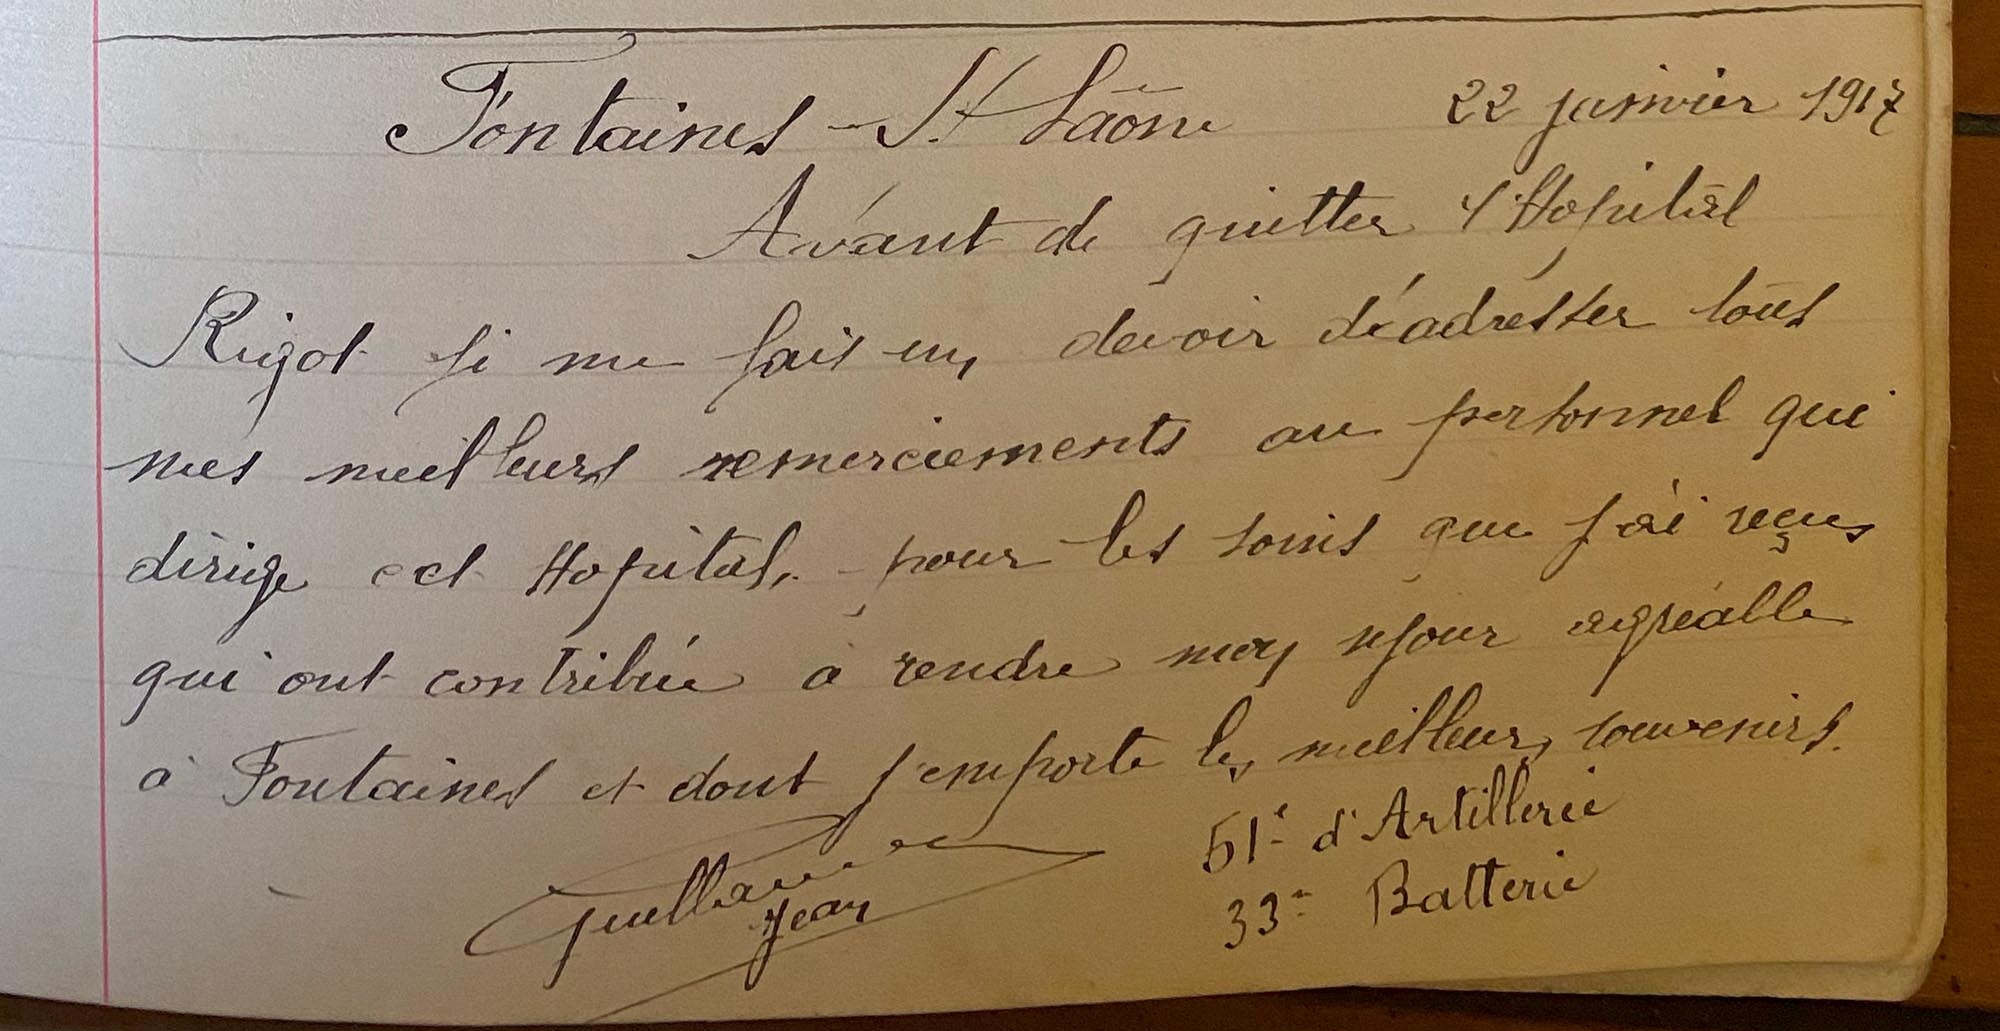 Fontaines - St Sâone 22 janvier 1917
Avant de quitter l'Hopital
Rigot je me fais un devoir d'éadresser tous
mes meilleurs remerciements au personnel qui
dirige cet Hopital, pour les soins que j'ai reçus
qui ont contribuée à rendre mon séjour agréable
à Fontaines et dont j'emporte les meilleurs souvenirs.
51e d'Artillerie
Jean
33e Batterie